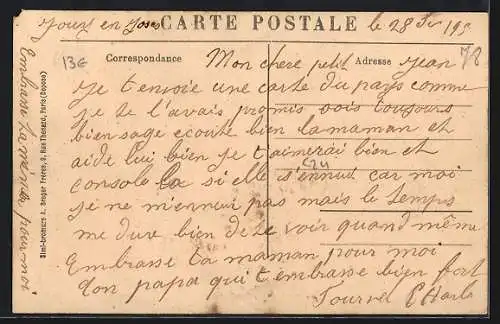 Jouy en Josas CARTE POSTALE le 28
13€ 78
Correspondance Adresse
Mon chere petit Jean
Je t'envoie une carte du pays comme
je te l'avais promis sois toujours
bien sage ecoute bien la maman et
aide lui bien je t'aimerai bien et
console la si elle s'ennui car moi
je ne m'ennui pas mais le temps
me dure bien de te voir quand même
Embrasse ta maman pour moi
ton papa qui t'embrasse bien fort
Tournel Charles
Embrasse la mémée pour moi
Simili-bromure A. Breger Frères, 9, Rue Thénard, Paris (Déposé)